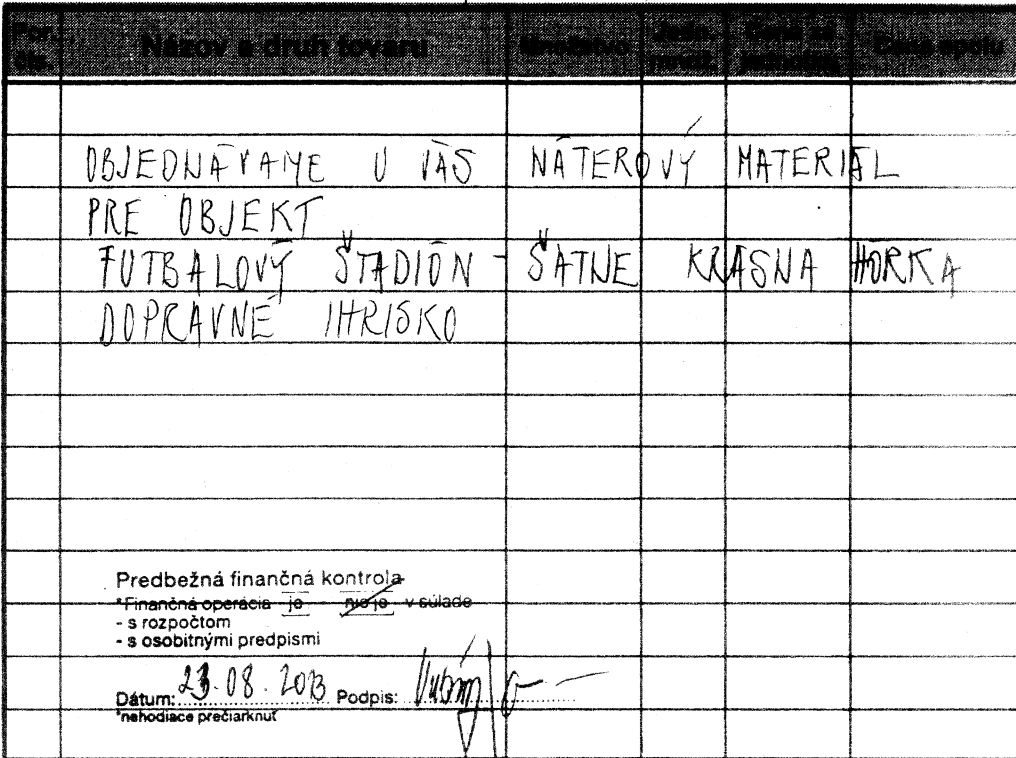 Por. čís. Názov a druh tovaru Množstvo Jedn. množ. Cena za jednotku Cena spolu
OBJEDNÁVAME U VÁS NÁTEROVÝ MATERIÁL
PRE OBJEKT
FUTBALOVÝ ŠTADIÓN - ŠATNE KRÁSNA HÔRKA
DOPRAVNÉ IHRISKO
Predbežná finančná kontrola
*Finančná operácia je - nie je v súlade
- s rozpočtom
- s osobitnými predpismi
Dátum: 23.08.2013 Podpis:
*nehodiace prečiarknuť